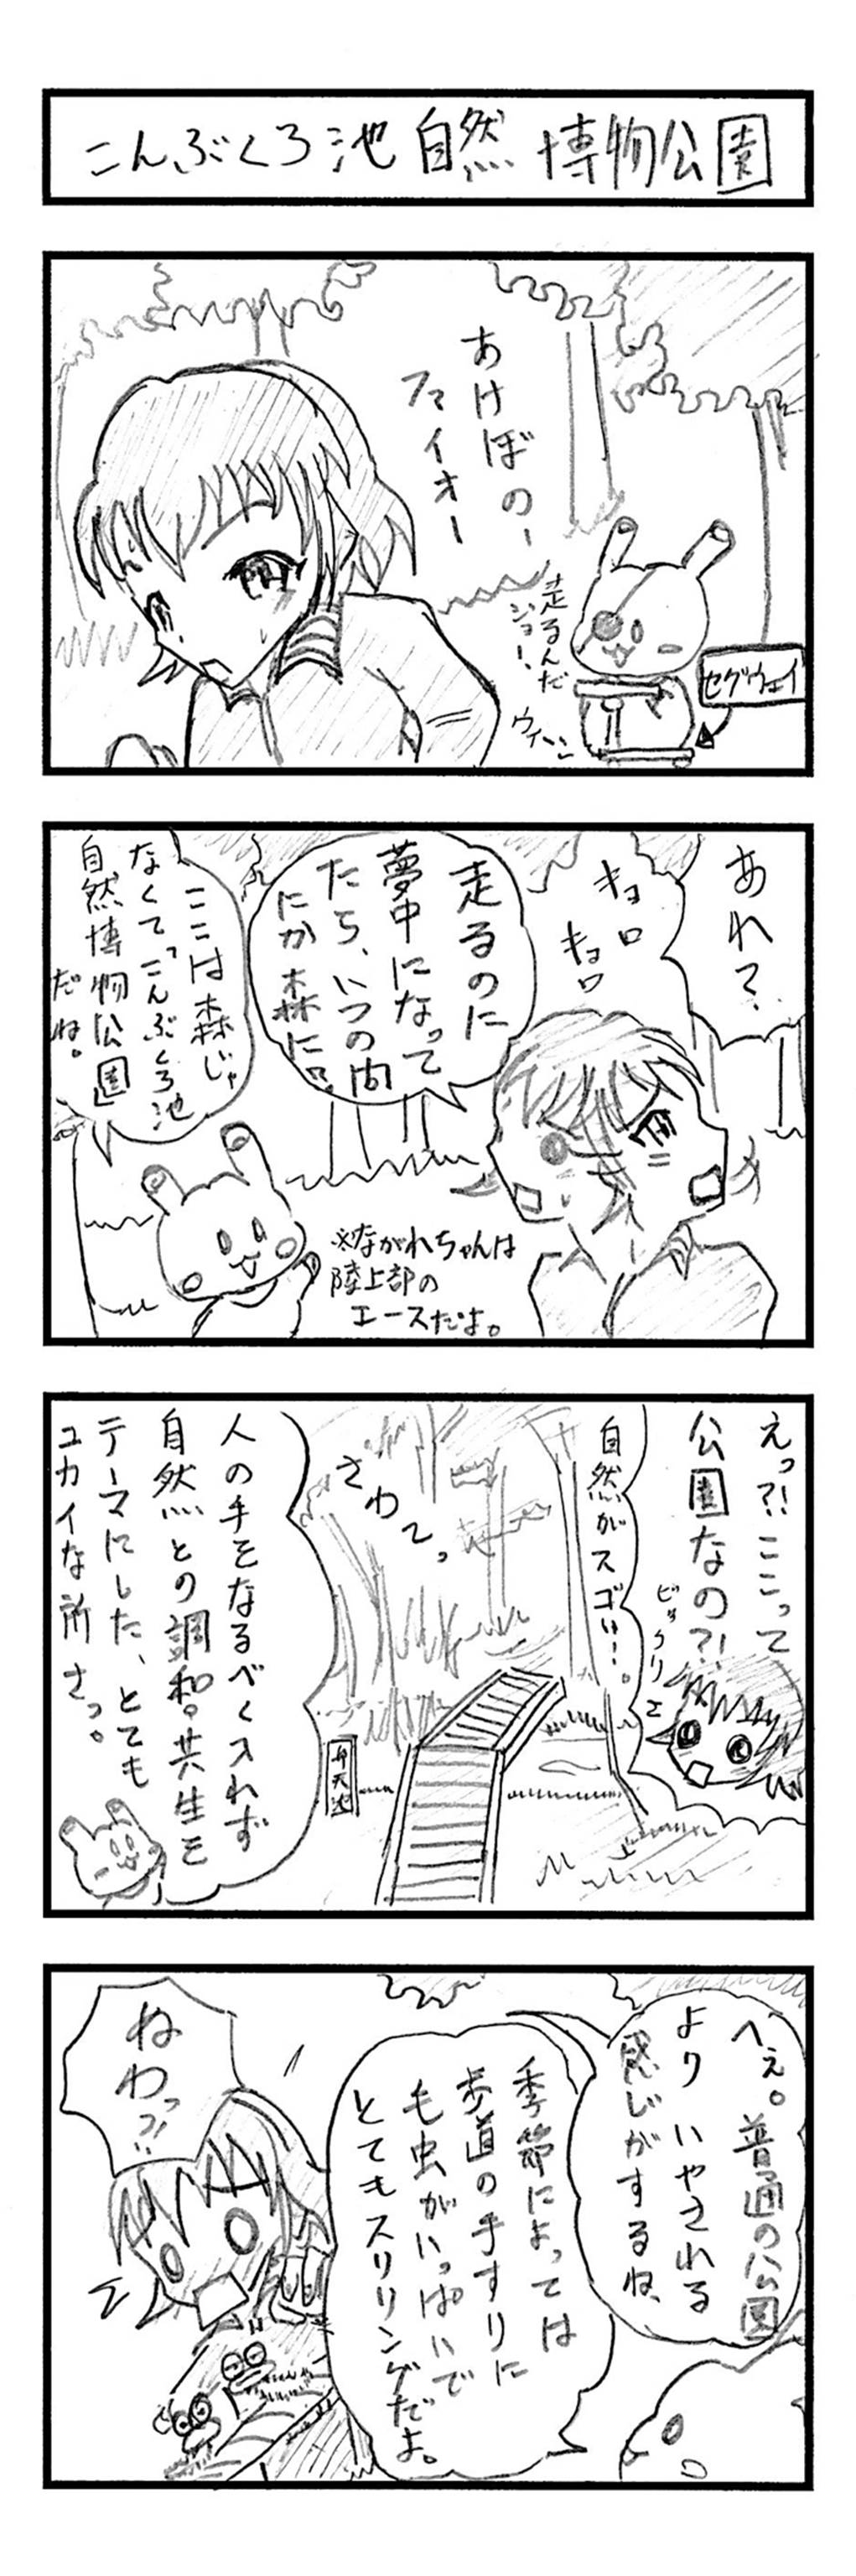 こんぶくろ池自然博物公園
あけぼのー
ファイオー
走るんだ
ジョー、
ウィーン
セグウェイ
あれ?
キョロ
キョロ
走るのに
夢中になって
たら、いつの間
にか森に!?
ここは森じゃ
なくて「こんぶくろ池
自然博物公園」
だね。
※ながれちゃんは
陸上部の
エースだよ。
えっ?!ここって
公園なの?!
ビックリ
自然がスゴい!。
さわ〜っ
弁天池
人の手をなるべく入れず
自然との調和。共生を
テーマにした、とても
ユカイな所さっ。
へぇ。普通の公園
より いやされる
感じがするね、
季節によっては
歩道の手すりに
毛虫がいっぱいで
とてもスリリングだよ。
ねわっっ!!